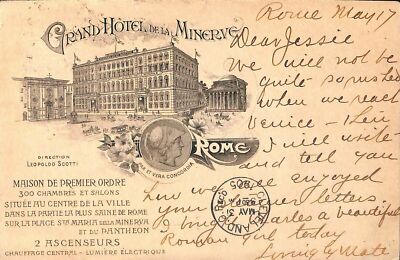 GRAND HÔTEL DE LA MINERVE
ROME
ILIA ET VERA CONCORDIA
DIRECTION
LEOPOLDO SCOTTI
MAISON DE PREMIER ORDRE
300 CHAMBRES ET SALONS
SITUÉE AU CENTRE DE LA VILLE
DANS LA PARTIE LA PLUS SAINE DE ROME
SUR LA PLACE STA MARIA SULLA MINERVA
ET DU PANTHEON
2 ASCENSEURS
CHAUFFAGE CENTRAL - LUMIÈRE ÉLECTRIQUE
Rome May 17
Dear Jessie
We will not be
quite so rushed
when we reach
Venice - then
I will write
and tell you
how we enjoyed
your letters
I Charles a beautiful
Roman today
Lovingly Mate
MAY 31
1905